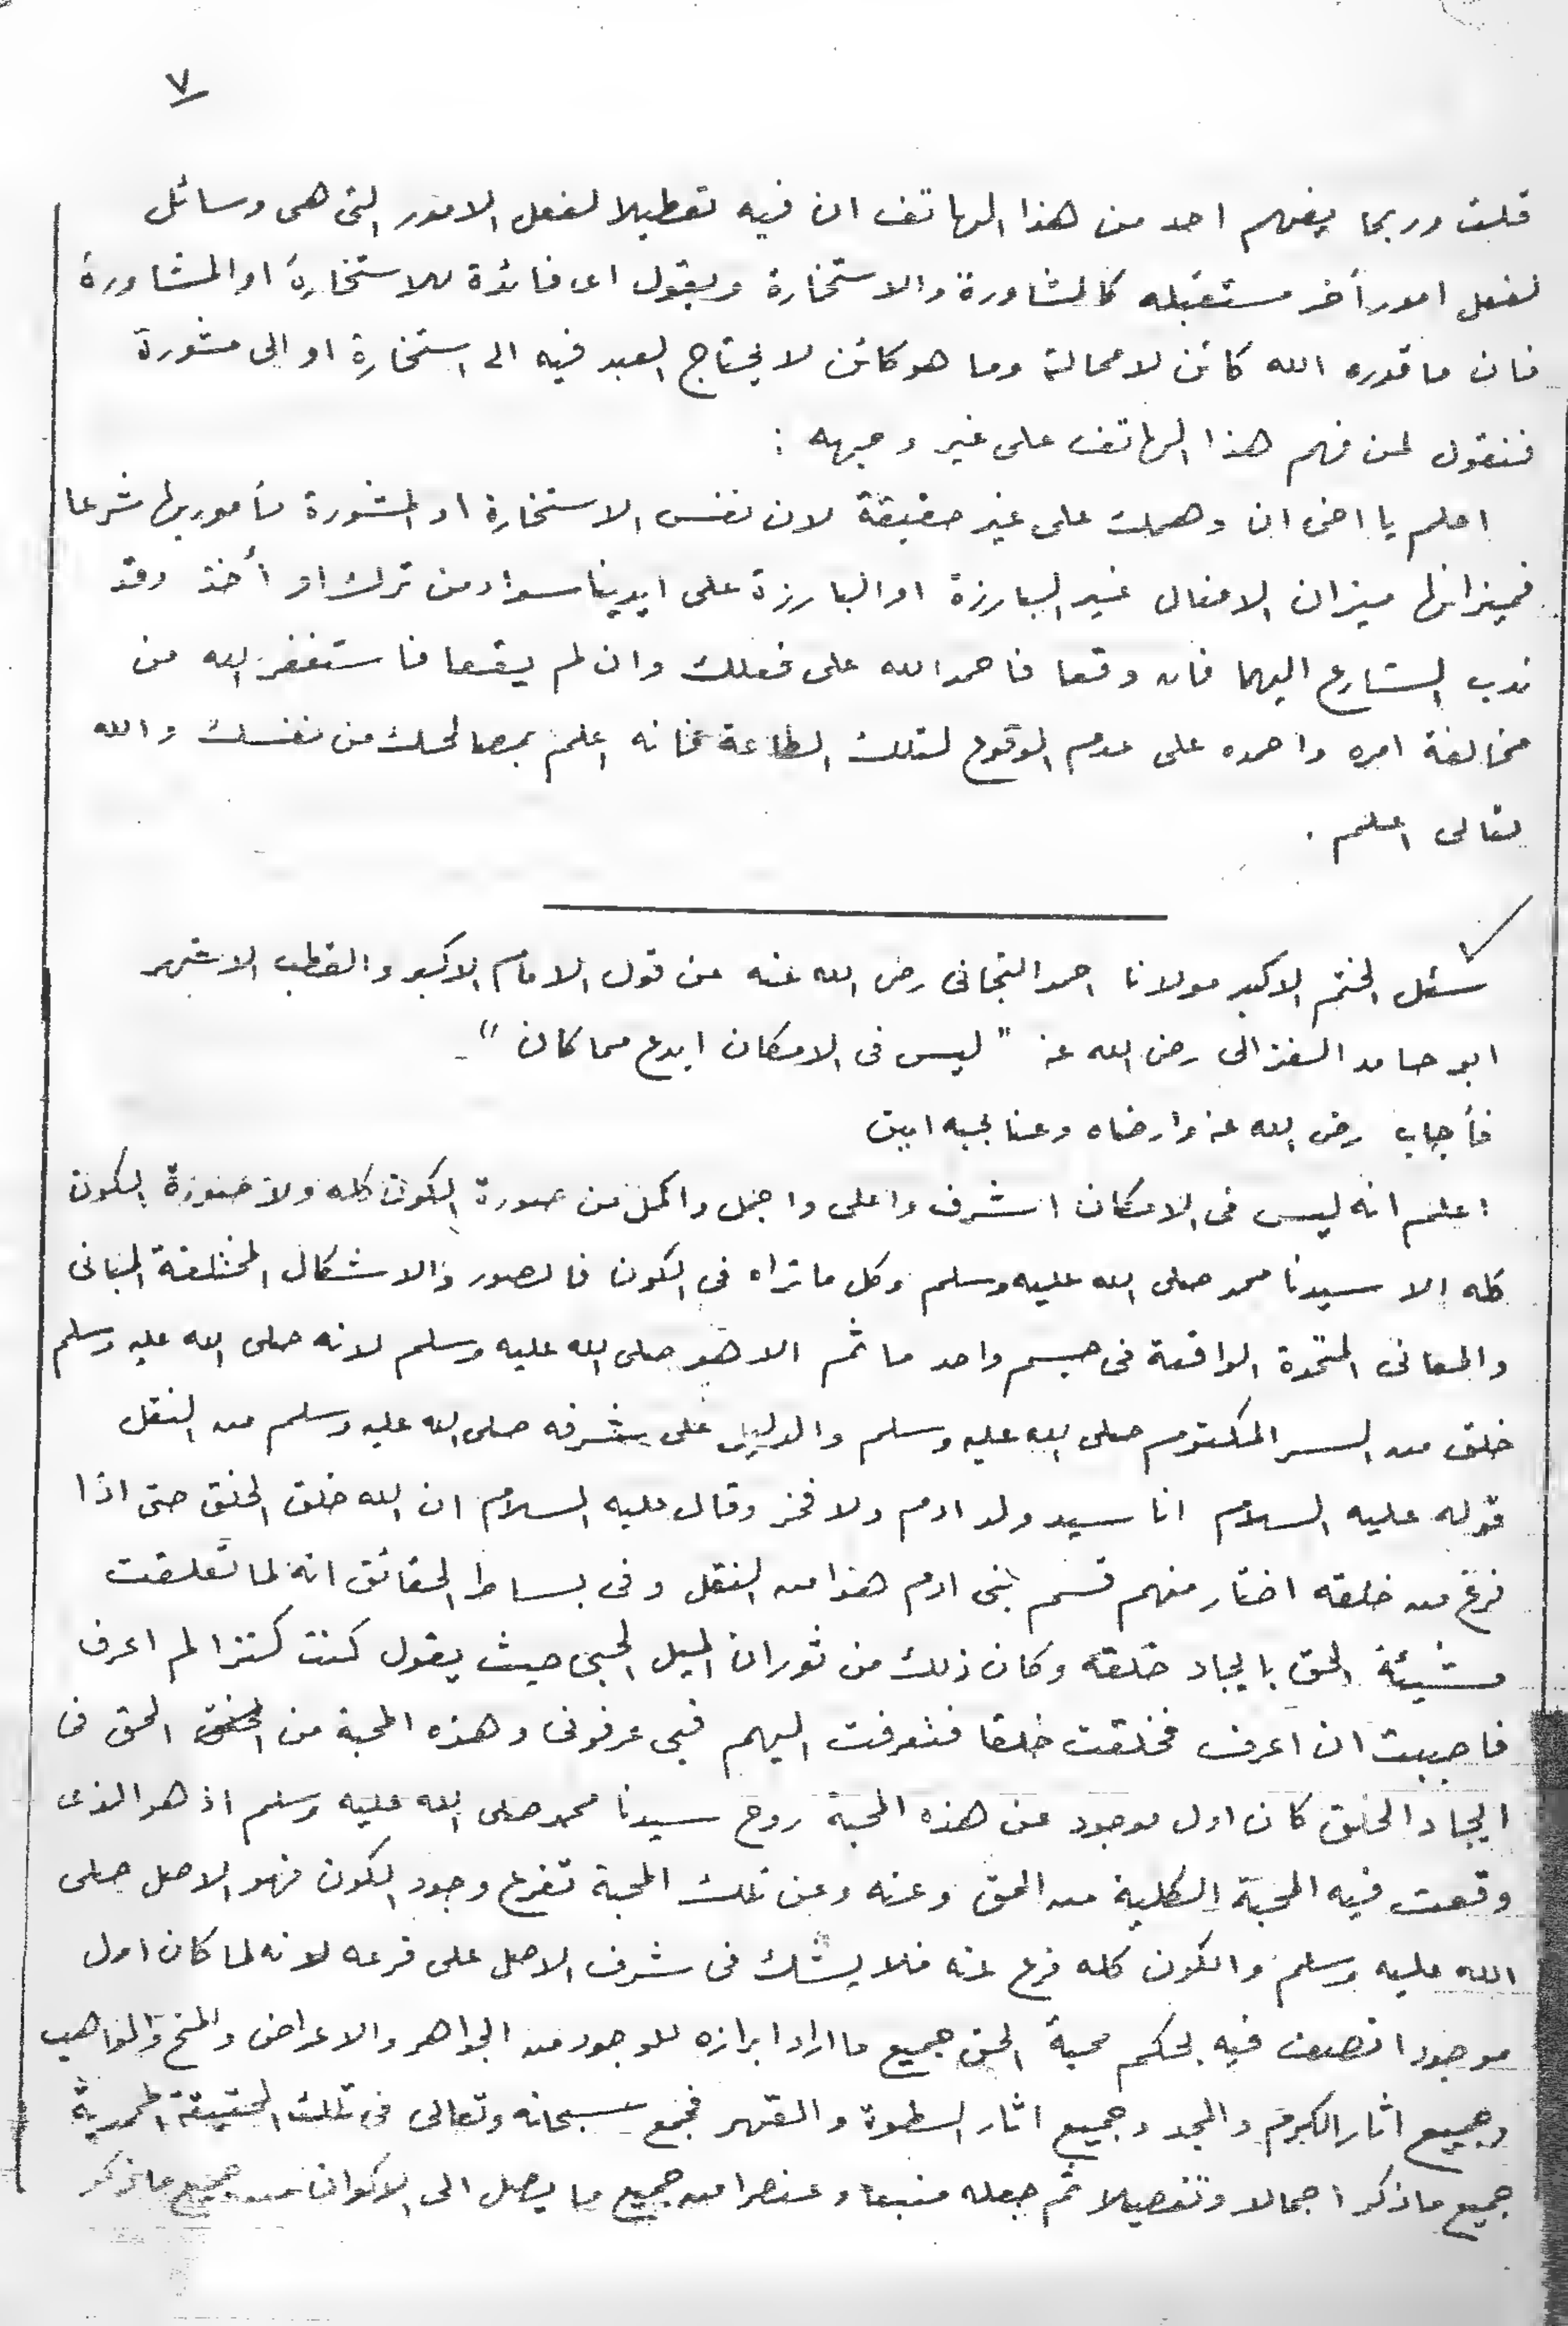 ٧
قلت وربما يفهم احد من هذا الهاتف ان فيه تعطيلا لفعل الامور التى هى وسائل
لفعل امور أخر مستقبله كالمشاورة والاستخارة ويقول اى فائدة للاستخارة او المشاورة
فان ما قدره الله كائن لا محالة وما هو كائن لا يحتاج العبد فيه الى استخارة او الى مشورة
فنقول لمن فهم هذا الهاتف على غير وجهه :
اعلم يا اخى ان وهمك على غير حقيقة لان نفس الاستخارة او المشورة مأمور بها شرعا
فميزانها ميزان الافعال غير البارزة او البارزة على ايدينا سواء من ترك او أخذ وقد
ندب الشارع اليهما فان وقعا فاحمد الله على فعلك وان لم يقعا فاستغفر الله من
مخالفة امره واحمده على عدم الوقوع لتلك الطاعة فانه اعلم بمصالحك من نفسك والله
تعالى اعلم .
سئل الختم الاكبر مولانا احمد التجانى رضى الله عنه عن قول الامام الاكبر والقطب الاشهر
ابو حامد الغزالى رضى الله عنه " ليس فى الامكان ابدع مما كان "
فأجاب رضى الله عنه وارضاه وعنا به امين
اعلم انه ليس فى الامكان اشرف واعلى واجمل واكمل من صورة الكون كله ولا صورة الكون
كله الا سيدنا محمد صلى الله عليه وسلم وكل ما تراه فى الكون فالصور والاشكال المختلفة المبانى
والمعانى المتحدة الواقعة فى جسم واحد ما ثم الا هو صلى الله عليه وسلم لانه صلى الله عليه وسلم
خلق من السر المكتوم صلى الله عليه وسلم والدليل على شرفه صلى الله عليه وسلم من النقل
قوله عليه السلام انا سيد ولد ادم ولا فخر وقال عليه السلام ان الله خلق الخلق حتى اذا
فرغ من خلقه اختار منهم قسم بنى ادم هذا من النقل وفى بساط الحقائق انه لما تعلقت
مشيئة الحق بايجاد خلقه وكان ذلك من ثوران الميل الحبى حيث يقول كنت كنزا لم اعرف
فاحببت ان اعرف فخلقت خلقا فتعرفت اليهم فبى عرفونى وهذه المحبة من الحق فى
ايجاد الخلق كان اول موجود عن هذه المحبة روح سيدنا محمد صلى الله عليه وسلم اذ هو الذى
وقعت فيه المحبة الكلية من الحق وعنه وعن تلك المحبة تفرع وجود الكون فهو الاصل صلى
الله عليه وسلم والكون كله فرع عنه فلا يشك فى شرف الاصل على فرعه لانه لما كان اول
موجود اتصف فيه بحكم محبة الحق جميع ما اراد ابرازه للوجود من الجواهر والاعراض والمنح والمواهب
وجميع اثار الكرم والمجد وجميع اثار السطوة والقهر فجمع سبحانه وتعالى فى تلك الحقيقة المحمدية
جميع ما ذكر اجمالا وتفصيلا ثم جعله منبعا وعنصرا من جميع ما يصل الى الاكوان من جميع ما ذكر